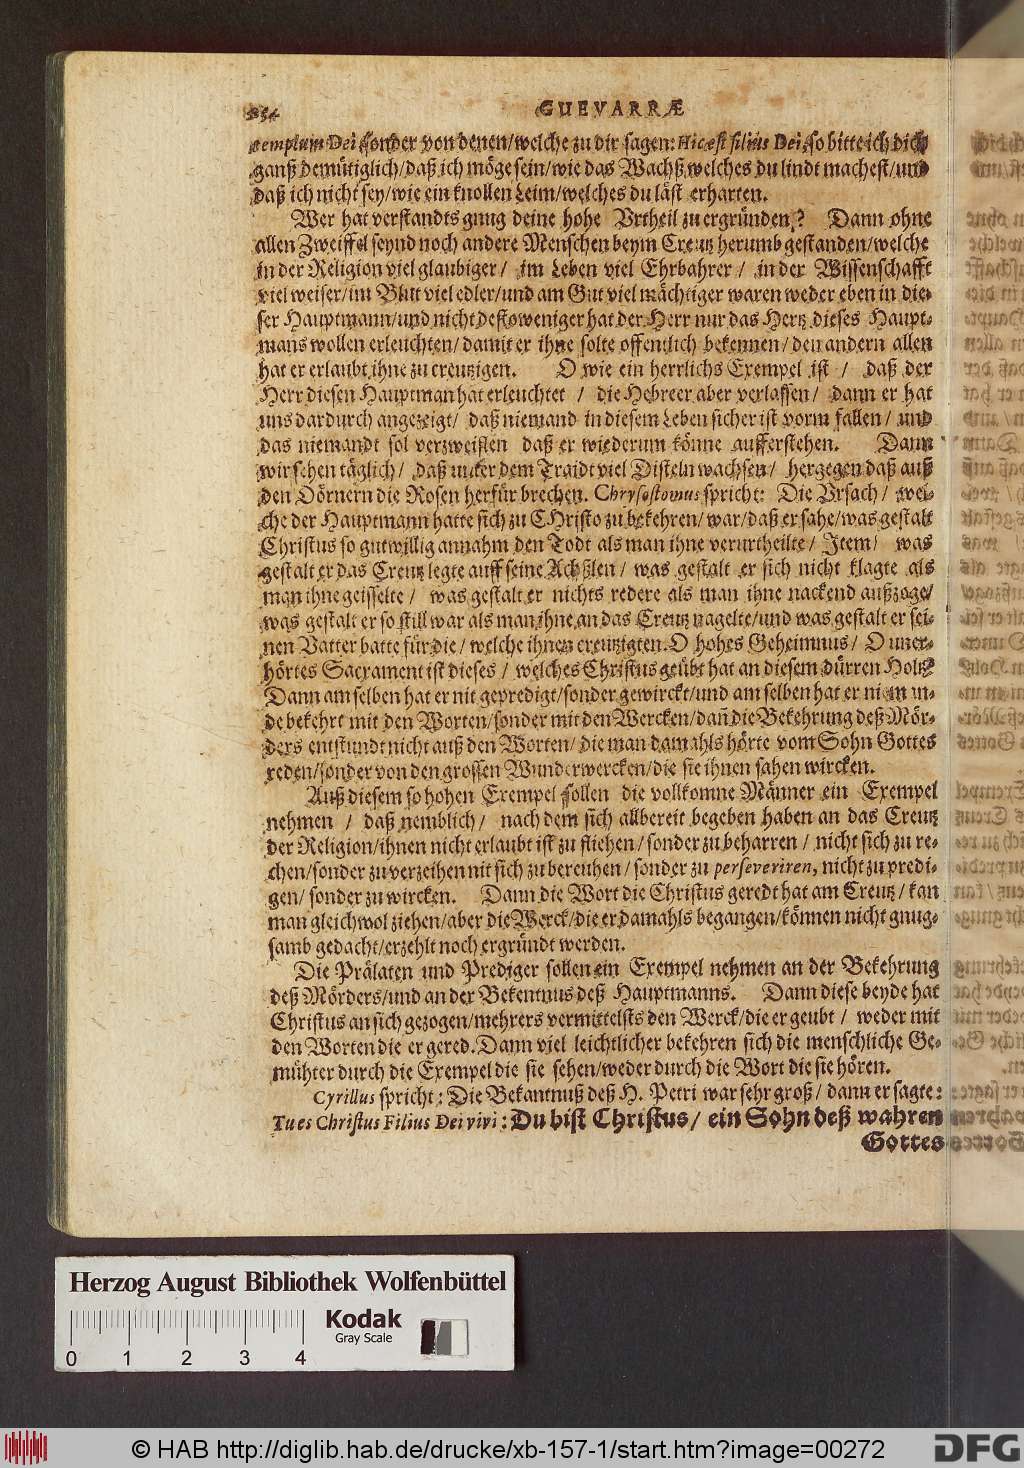 254
GUEVARRÆ
templum Dei sonder von denen/welche zu dir sagen: Hic est filius Dei, so bitte ich dich
gantz demütiglich/daß ich möge sein/wie das Wachß welches du lindt machest/und
daß ich nicht sey/wie ein knollen Leim/welches du läst erharten.
Wer hat verstandts gnug deine hohe Vrtheil zu ergründen? Dann ohne
allen Zweiffel seynd noch andere Menschen beym Creutz herumb gestanden/welche
in der Religion viel glaubiger/ im Leben viel Ehrbahrer/ in der Wissenschafft
viel weiser/im Blut viel edler/und am Gut viel mächtiger waren weder eben in die-
ser Hauptmann/und nicht destoweniger hat der Herr nur das Hertz dieses Haupt-
mans wollen erleuchten/damit er ihne solte offentlich bekennen/den andern allen
hat er erlaubt ihne zu creutzigen. O wie ein herrlichs Exempel ist / daß der
Herr diesen Hauptman hat erleuchtet / die Hebreer aber verlassen/ dann er hat
uns dardurch angezeigt/ daß niemand in diesem Leben sicher ist vorm fallen/ und
das niemandt sol verzweiflen daß er wiederum könne aufferstehen. Dann
wir sehen täglich/ daß under dem Traidt viel Disteln wachsen/ hergegen daß auß
den Dörnern die Rosen herfür brechen. Chrysostomus spricht: Die Vrsach/ wel-
che der Hauptmann hatte sich zu CHristo zu bekehren/war/daß er sahe/was gestalt
Christus so gutwillig annahm den Todt als man ihne verurtheilte/ Item/ was
gestalt er das Creutz legte auff seine Achßlen/ was gestalt er sich nicht klagte als
man ihne geisselte/ was gestalt er nichts redere als man ihne nackend außzoge/
was gestalt er so still war als man ihne an das Creutz nagelte/und was gestalt er sei-
nen Vatter batte für die/welche ihnen creutzigten. O hohes Geheimnus/ O uner-
hörtes Sacrament ist dieses/ welches Christus geübt hat an diesem dürren Holtz
Dann am selben hat er nit gepredigt/sonder gewirckt/und am selben hat er niem in-
de bekehrt mit den Worten/sonder mit den Wercken/dañ die Bekehrung deß Mör-
ders entstundt nicht auß den Worten/die man damahls hörte vom Sohn Gottes
reden/sonder von den grossen Wunderwercken/die sie ihnen sahen wircken.
Auß diesem so hohen Exempel sollen die vollkomne Männer ein Exempel
nehmen / daß nemblich/ nach dem sich allbereit begeben haben an das Creutz
der Religion/ihnen nicht erlaubt ist zu fliehen/sonder zu beharren/ nicht sich zu re-
chen/sonder zu verzeihen nit sich zu bereuhen/sonder zu perseveriren, nicht zu predi-
gen/sonder zu wircken. Dann die Wort die Christus geredt hat am Creutz/kan
man gleichwol ziehen/aber die Werck/die er damahls begangen/können nicht gnug-
samb gedacht/erzehlt noch ergründt werden.
Die Prälaten und Prediger sollen ein Exempel nehmen an der Bekehrung
deß Mörders/und an der Bekentnus deß Hauptmanns. Dann diese beyde hat
Christus an sich gezogen/mehrers vermittelsts den Werck/die er geubt/ weder mit
den Worten die er gered. Dann viel leichtlicher bekehren sich die menschliche Ge-
mühter durch die Exempel die sie sehen/weder durch die Wort die sie hören.
Cyrillus spricht: Die Bekantnuß deß H. Petri war sehr groß/ dann er sagte:
Tu es Christus Filius Dei vivi: Du bist Christus/ ein Sohn deß wahren
Gottes
Herzog August Bibliothek Wolfenbüttel
Kodak
Gray Scale
0 1 2 3 4
© HAB http://diglib.hab.de/drucke/xb-157-1/start.htm?image=00272
DFG